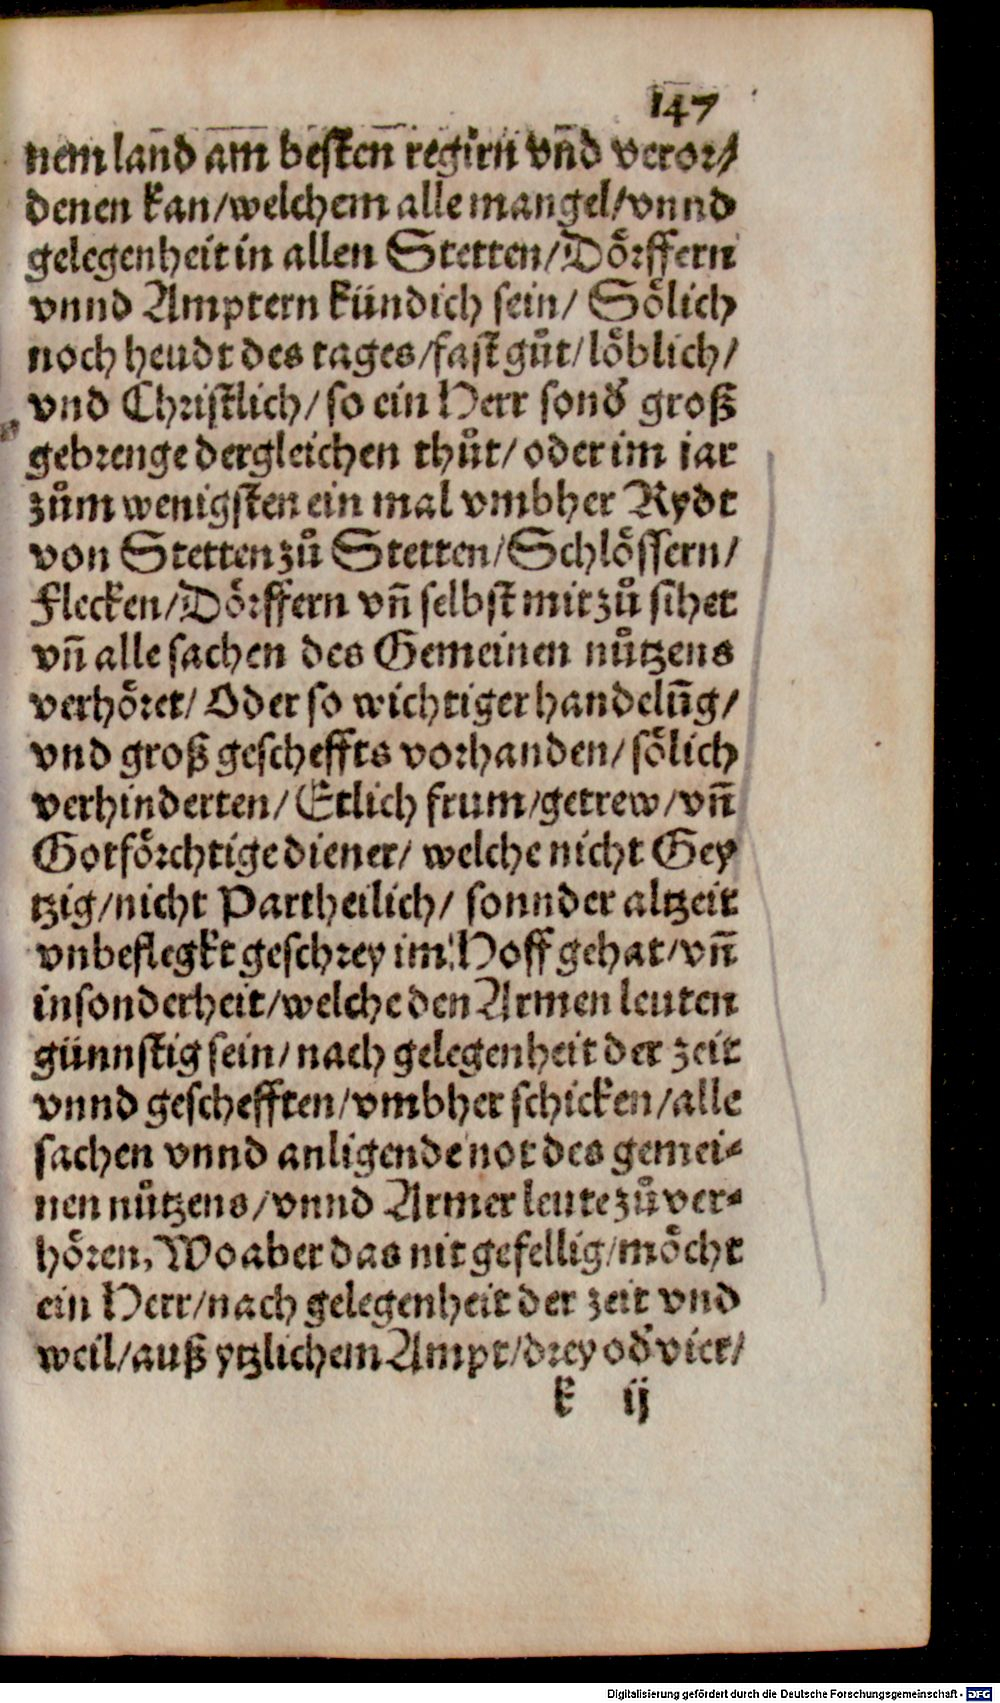 147
nem land am besten regirn vñd veror/
denen kan/welchem alle mangel/vnnd
gelegenheit in allen Stetten/Dörffern
vnnd Amptern kündich sein/ Sölich
noch heudt des tages/fast gůt/löblich/
vnd Christlich/so ein Herr sond̕ groß
gebrenge dergleichen thůt/oder im iar
zům wenigsten ein mal vmbher Rydt
von Stetten zů Stetten/Schlössern/
Flecken/Dörffern vñ selbst mit zů sihet
vñ alle sachen des Gemeinen nůtzens
verhöret/ Oder so wichtiger handelūg/
vnd groß gescheffts vorhanden/sölich
verhinderten/ Etlich frum/getrew/vñ
Gotförchtige diener/ welche nicht Gey
tzig/nicht Partheilich/ sonnder altzeit
vnbeflegkt geschrey im Hoff gehat/vñ
insonderheit/welche den Armen leuten
günnstig sein/nach gelegenheit der zeit
vnnd geschefften/vmbher schicken/alle
sachen vnnd anligende not des gemei-
nen nůtzens/vnnd Armer leute zů ver-
hören, Wo aber das nit gefellig/möcht
ein Herr/nach gelegenheit der zeit vnd
weil/auß ytzlichem Ampt/drey od̕ vier/
k ij
Digitalisierung gefördert durch die Deutsche Forschungsgemeinschaft - DFG